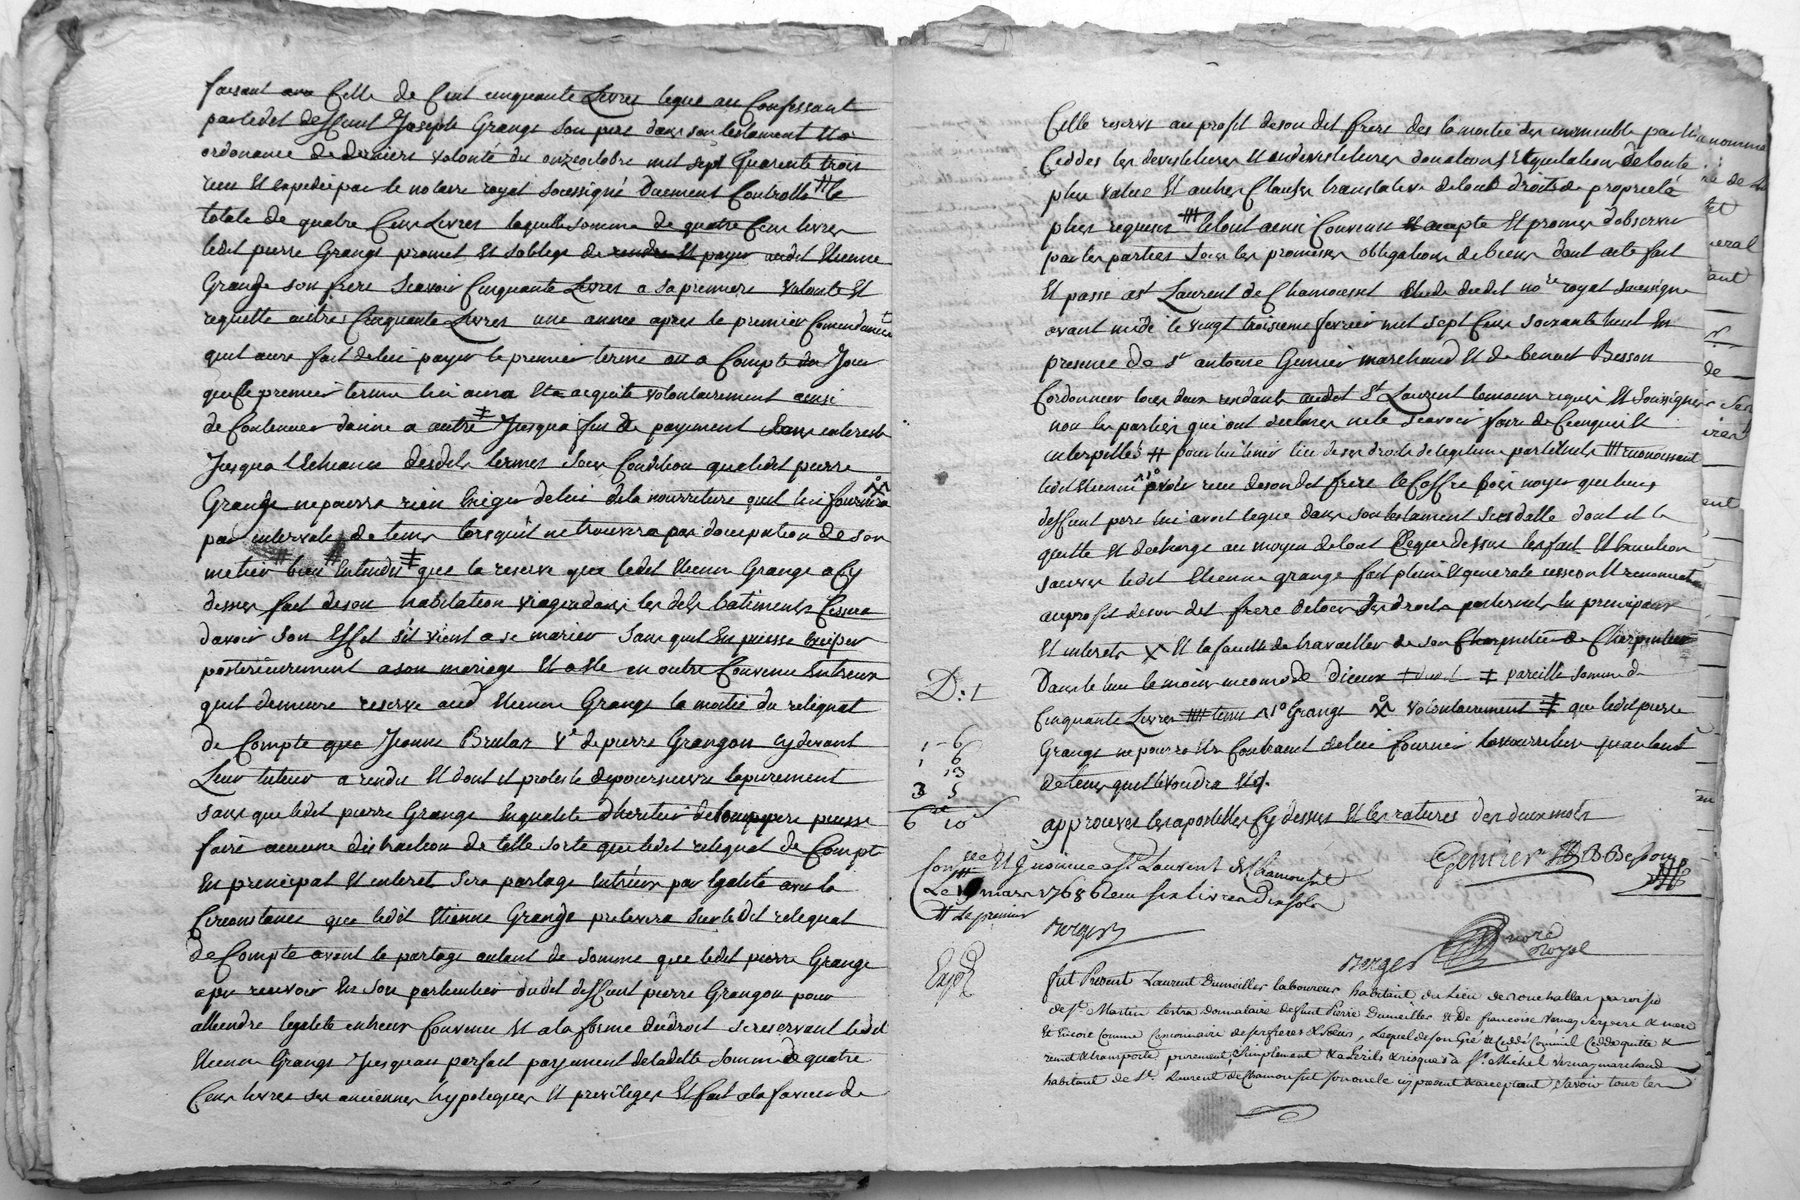 faisant avec Celle de Cent cinquante Livres legué au Confessant
par ledit deffunt Joseph Grange son pere dans son testament et
ordonance de derniere volonté du onze octobre mil sept Quarente trois
receu Et expedié par le notaire royal soussigné Duement Controllé ╫ le
totale de quatre Cens Livres laquelle somme de quatre Cens livres
ledit pierre Grange promet Et soblige de rendre Et payer audit Etienne
Grange son frere Scavoir Cinquante Livres a sa premiere volonté Et
requette autres Cinquante Livres une année apres le premier Comendement
quil aura fait de luy payer le premier terme ou a Compte du Jour
que le premier terme luy aura Eté acquité volontairement ainsi
de Continuer dannée a autre ǂ Jusqua fin de payement Sans interests
Jusqua l'Echeance desdits termes Sous Condition que ledit pierre
Grange ne pourra rien Exiger de luy de la nourriture quil luy fournira
par intervale de tems lorsquil ne trouvera pas doccupation de son
metier bien Entendu ǂ que la reserve que ledit Etienne Grange a Cy
dessus fait de son habitation viagere dans les dits batiments Cessera
davoir Son Effet Sil vient a se marier Sans quil En puisse Exciper
posterieurement a son mariage Et a Eté en outre Convenu Entreux
quil demeure reservé aud Etienne Grange la moitié du reliquat
de Compte que Jeanne Brulas Ve de pierre Grangeon Cy devant
Leur tuteur a rendu Et dont il proteste de poursuivre lapurement
sans que ledit pierre Grange En qualité D'heritier de son pere puisse
faire aucune distraction de telle sorte que ledit reliquat de Compte
En principal Et interet Sera partagé Entreux par Egalité avec la
Circonstance que ledit Etienne Grange prelevera Sur ledit reliquat
de Compte avant le partage autant de Somme que ledit pierre Grange
a pu recevoir En Son particulier dudit deffunt pierre Grangeon pour
atteindre legalité entreux Convenue Et a la forme du droit Se reservant ledit
Etienne Grange Jusquau parfait payement de ladette Somme de quatre
Cens livres Ses anciennes hypoteques Et privileges Et fait a la faveur de
Celle reserve au profit de son dit frere des la moitié des immeuble par luy
Ceddés les devestitures Et investitures donation stipulation de toute
plus value Et autres Clauses translative de tous droits de proprieté
plus requises ╫ le tout ainsi Convenu Et accepté Et promis d'observer
par les parties Sous les promesses obligations de biens dont acte fait
Et passé a St Laurent de Chamousset Etude dudit nore royal Soussigné
avant midi le vingt troisieme fevrier mil sept Cens Soixante huit En
presence de Sr antoine Genier marchand Et de benoit Besson
Cordonnier tous deux residants audit St Laurent temoins requis Et Soussignés
non les parties qui ont declaré ne le Scavoir faire de Ce enquis Et
interpellés ╫ pour luy tenir lieu de ses droits de legitime paternels ╫ reconoissant
ledit Etienne avoir receu de son dit frere le Coffre bois noyer que leur
deffunt pere luy avoit legué dans son testament Susdatté dont il le
quitte Et decharge au moyen de tout Ce que dessus les fait Et
Sauves ledit Etienne grange fait pleine Et generale cession Et renonciation
au profit de son dit frere de tous Ses droits paternels En principaux
Et interets X Et la faculté de travailler de son metier de Charpentier
Dans le lieu le moins incomode Diceux ǂ pareille Somme de
Cinquante Livres Grange volontairement ǂ que ledit pierre
Grange ne pourra Etre Contraint de luy fournir la nourriture quautant
de tems quil le voudra Et
approuvés les apostilles Cy dessus Et les ratures des deux mots
D: 1
1 6
1 6
13
3 5
6 10
Genier B Besson
Conlé Et Insinué a St Laurent de Chamousset
Le mars 1768 Receu Six livres Dix sols
le premier
Berger
Berger Nore Royal
Expdé
fut Present Laurent Dumeillier laboureur habitant du Lieu de paroisse
de St Martin Lestra Donnataire de feu Pierre Dumeillier & De francoise Vernay Ses pere & mere
& Encore Comme Cessionnaire de Ses freres & Sœurs, Lequel de Son Gré a Ceddé Comme il Cedde quitte &
remet & transporte purement, Simplement & a perils & risques a Sr Michel Vernay marchand
habitant de St Laurent de Chamousset Son oncle icy present & acceptant, Savoir tous les